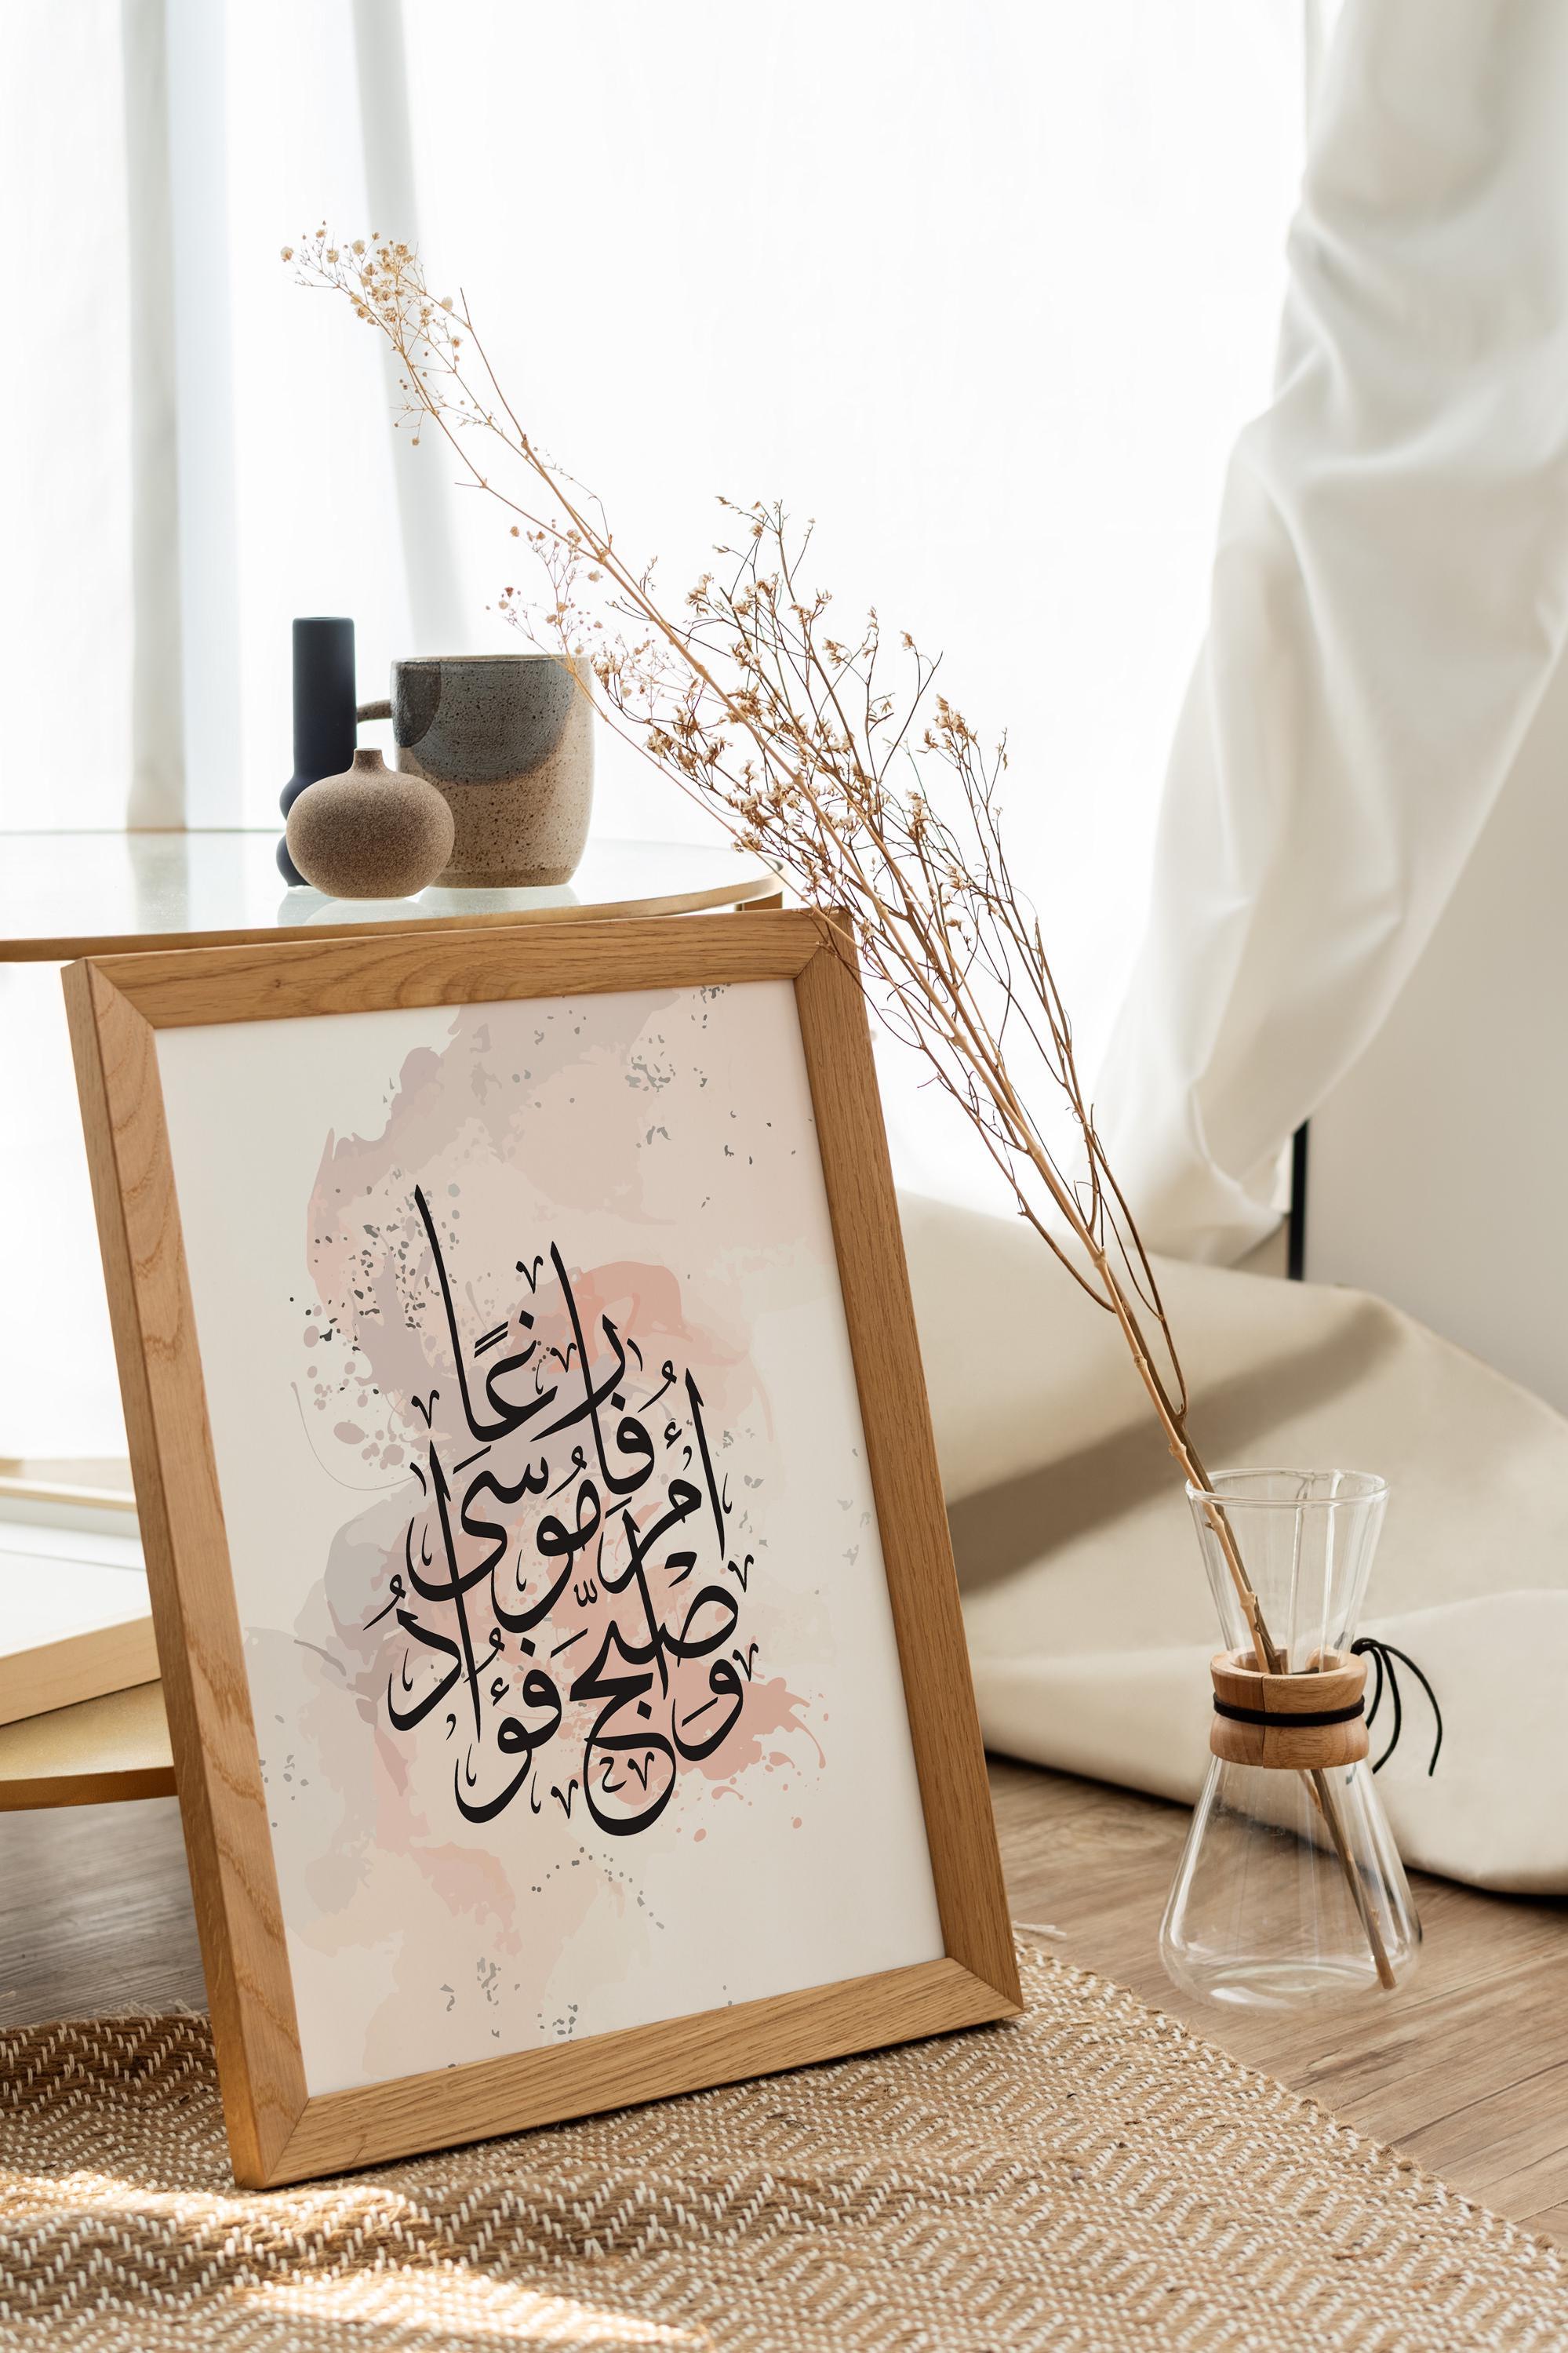 وَأَصْبَحَ فُؤَادُ
أُمِّ مُوسَى
فَارِغًا